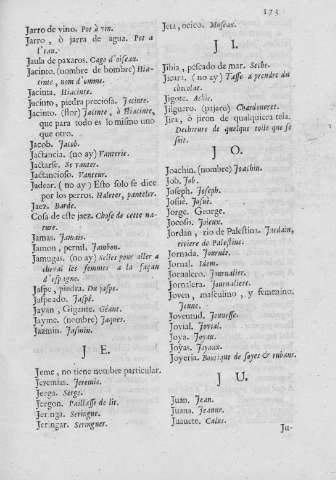 173
Jarro de vino. Pot à vin.
Jarro, ò jarra de agua. Pot a
l'eau.
Jaula de paxaros. Cage d'oiseau.
Jacinto. (nombre de hombre) Hia-
cinte, nom d'omme.
Jacinta. Hiacinte.
Jacinto, piedra preciosa. Jacinte.
Jacinto. (flor) Jacinte, ò Hiacinte,
que para todo es lo mismo uno
que otro.
Jacob. Jacob.
Jactancia. (no ay) Vanterie.
Jactarse. Se vanter.
Jactancioso. Vanteur.
Jadear. (no ay) Esto solo se dice
por los perros. Haleter, panteler.
Jaez. Barde.
Cosa de este jaez. Chose de cette na-
ture.
Jamas. Jamais.
Jamon, pernil. Jambon.
Jamugas. (no ay) Selles pour aller a
cheval les femmes a la façon
d'espagne.
Jaspe, piedra. Du jaspe.
Jaspeado. Jaspé.
Jayan, Gigante. Géant.
Jayme. (nombre) Jaques.
Jazmin. Jasmin.
J E.
Jeme, no tiene nombre particular.
Jeremias. Jeremie.
Jerga. Serge.
Jergon. Paillasse de lit.
Jeringa. Seringue.
Jeringar. Seringuer.
Jeta, ocico. Museau.
J I.
Jibia, pescado de mar. Seche.
Jicara. (no ay) Tasse a prendre du
chocolat.
Jigote. Achis.
Jilguero. (pajaro) Chardonneret.
Jira, ò jiron de qualquiera tela.
Dechirure de quelque toile que se
soit.
J O.
Joachin. (nombre) Joachin.
Job. Job.
Joseph. Joseph.
Josué. Josüé.
Jorge. George.
Jocoso. Joieux.
Jordan, rio de Palestina. Jordain,
riviere de Palestine.
Jornada. Journée.
Jornal. Idem.
Jornalero. Journalier.
Jornalera. Journaliere.
Joven, masculino, y femenino.
Jeune.
Joventud. Jeunesse.
Jovial. Jovial.
Joya. Joyau.
Joyas. Joyaux.
Joyeria. Boutique de soyes & rubans.
J U.
Juan. Jean.
Juana. Jeanne.
Juanete. Calus.
Ju-